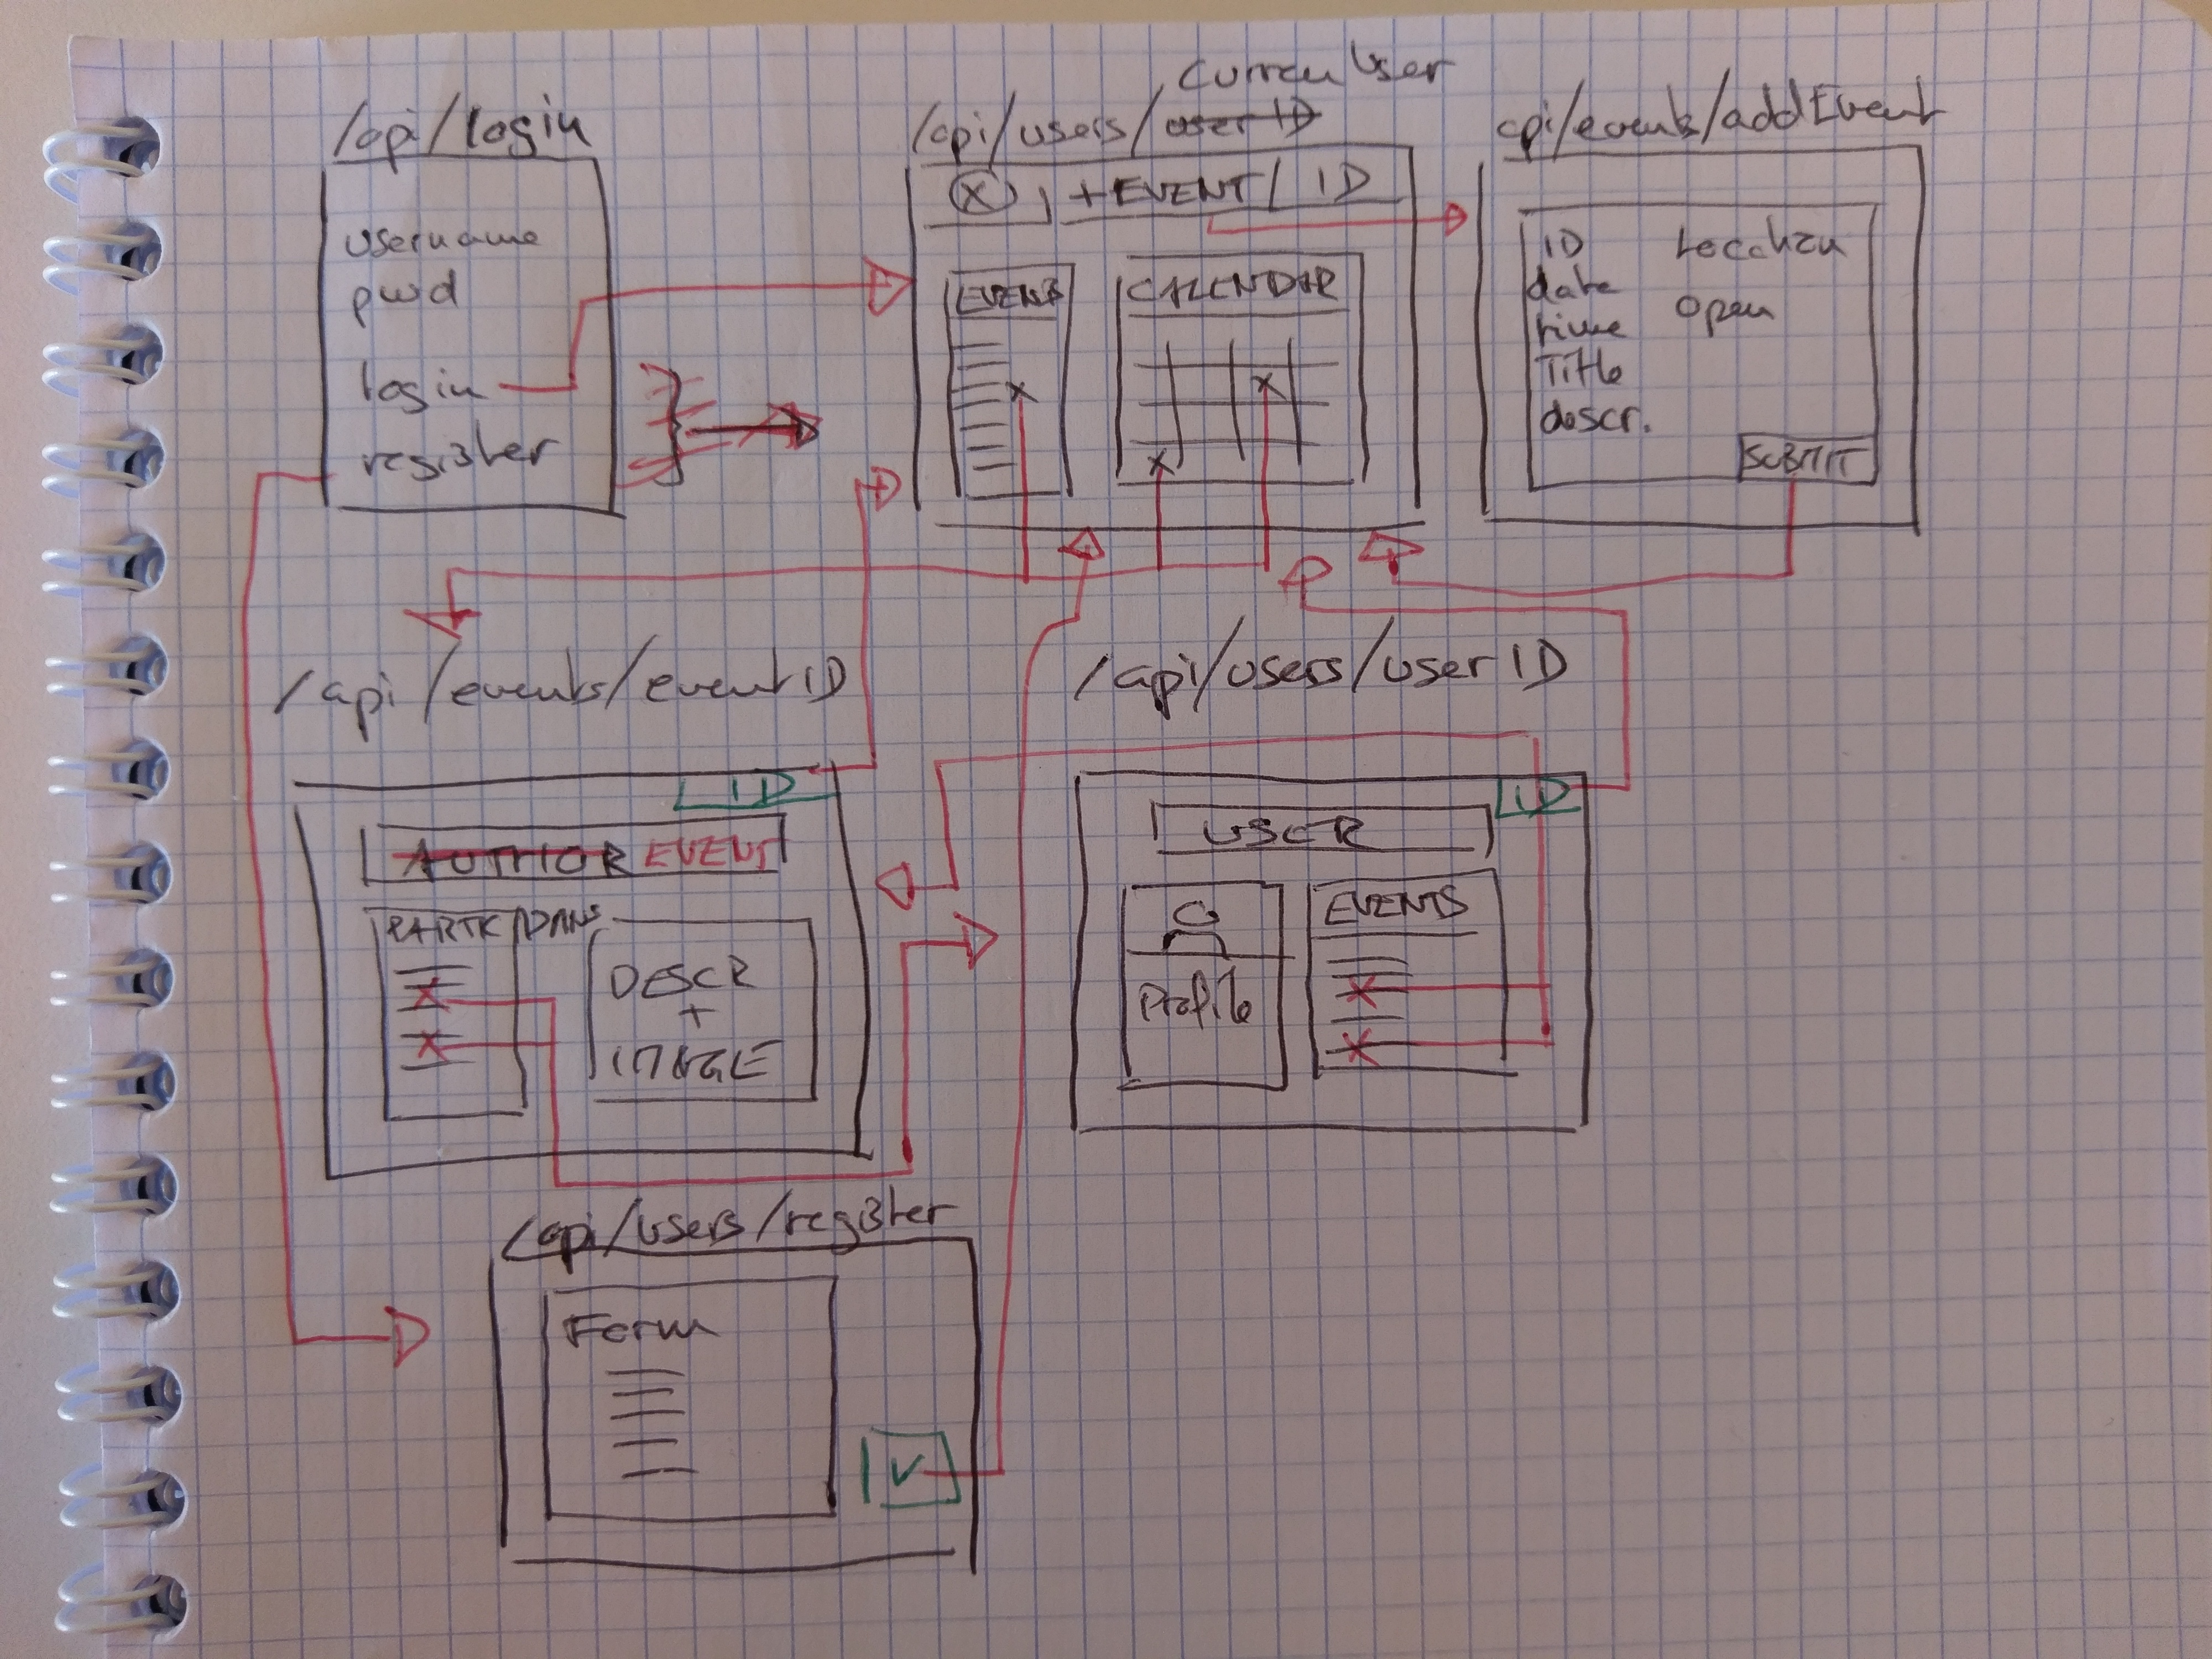 /api/login
username
pwd
login
register
curren User
/api/users/user ID
X +EVENT ID
EVENTS
CALENDAR
api/events/addEvent
ID
date
time
Title
descr.
Location
open
SUBMIT
/api/events/eventID
ID
AUTHOR EVENT
PARTICIPANS
DESCR
+
IMAGE
/api/users/user ID
ID
USER
Profile
EVENTS
/api/users/register
Form